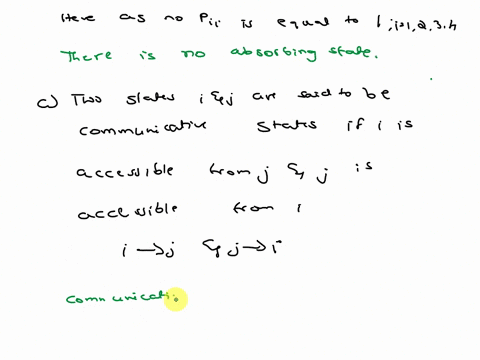 Here as no Pii is equal to 1, i=1,2,3,4
There is no absorbing state.
c) Two states i & j are said to be
communicative states if i is
accessible from j & j is
accessible from i
i → j & j → i
communicati.